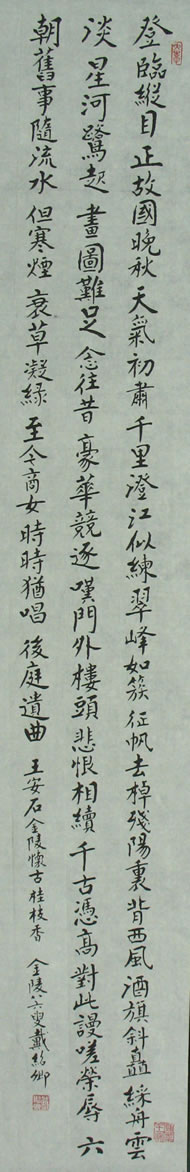 登臨縱目正故國晚秋天氣初肅千里澄江似練翠峰如簇征帆去棹殘陽裏背西風酒旗斜矗綵舟雲
淡星河鷺起畫圖難足念往昔豪華競逐嘆門外樓頭悲恨相續千古憑高對此謾嗟榮辱六
朝舊事隨流水但寒煙衰草凝綠至今商女時時猶唱後庭遺曲 王安石金陵懷古桂枝香 金陵八六叟戴紹卿